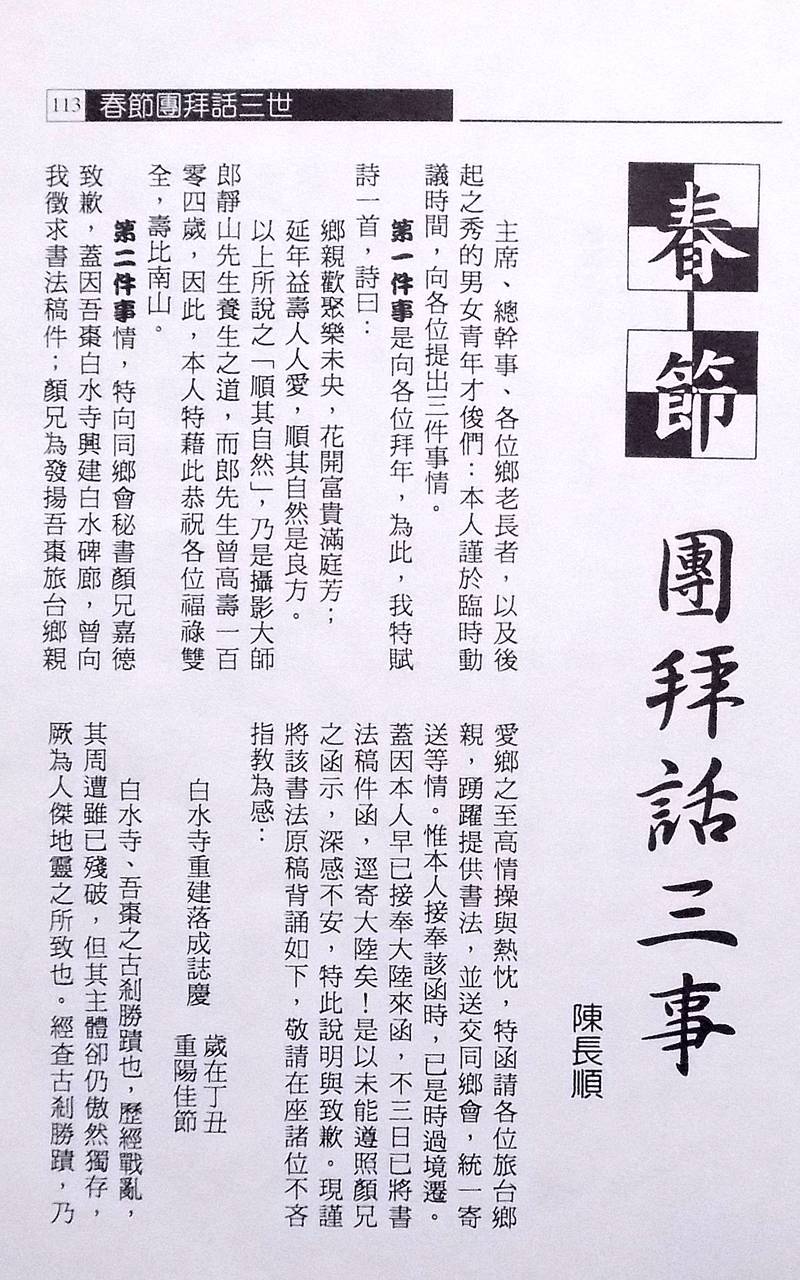 113 春節團拜話三世
春節團拜話三事
陳長順
主席、總幹事、各位鄉老長者，以及後
起之秀的男女青年才俊們：本人謹於臨時動
議時間，向各位提出三件事情。
第一件事是向各位拜年，為此，我特賦
詩一首，詩曰：
鄉親歡聚樂未央，花開富貴滿庭芳；
延年益壽人人愛，順其自然是良方。
以上所說之「順其自然」，乃是攝影大師
郎靜山先生養生之道，而郎先生曾高壽一百
零四歲，因此，本人特藉此恭祝各位福祿雙
全，壽比南山。
第二件事情，特向同鄉會秘書顏兄嘉德
致歉，蓋因吾棗白水寺興建白水碑廊，曾向
我徵求書法稿件；顏兄為發揚吾棗旅台鄉親
愛鄉之至高情操與熱忱，特函請各位旅台鄉
親，踴躍提供書法，並送交同鄉會，統一寄
送等情。惟本人接奉該函時，已是時過境遷。
蓋因本人早已接奉大陸來函，不三日已將書
法稿件函，逕寄大陸矣！是以未能遵照顏兄
之函示，深感不安，特此說明與致歉。現謹
將該書法原稿背誦如下，敬請在座諸位不吝
指教為感：
白水寺重建落成誌慶
歲在丁丑
重陽佳節
白水寺、吾棗之古剎勝蹟也，歷經戰亂，
其周遭雖已殘破，但其主體卻仍傲然獨存，
厥為人傑地靈之所致也。經查古剎勝蹟，乃